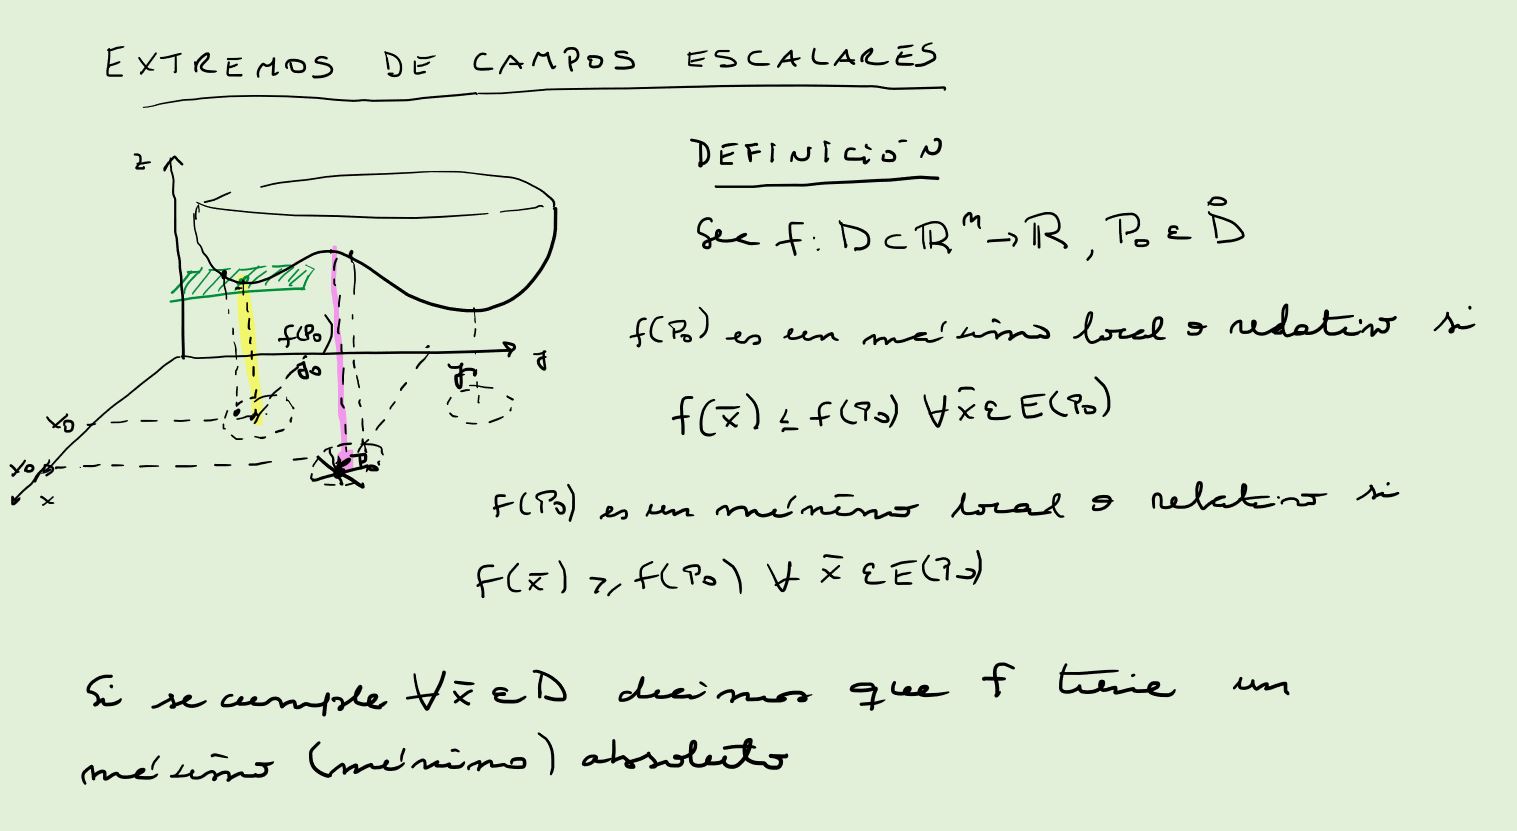 EXTREMOS DE CAMPOS ESCALARES
DEFINICIÓN
Sea f: D ⊂ ℝⁿ → ℝ, P₀ ∈ D̊
f(P₀) es un máximo local o relativo si
f(x̄) ≤ f(P₀) ∀ x̄ ∈ E(P₀)
f(P₀) es un mínimo local o relativo si
f(x̄) ≥ f(P₀) ∀ x̄ ∈ E(P₀)
Si se cumple ∀ x̄ ∈ D decimos que f tiene un
máximo (mínimo) absoluto
z
f(P₀)
y₀
y₁
y
x₀
x₀
x
P₀